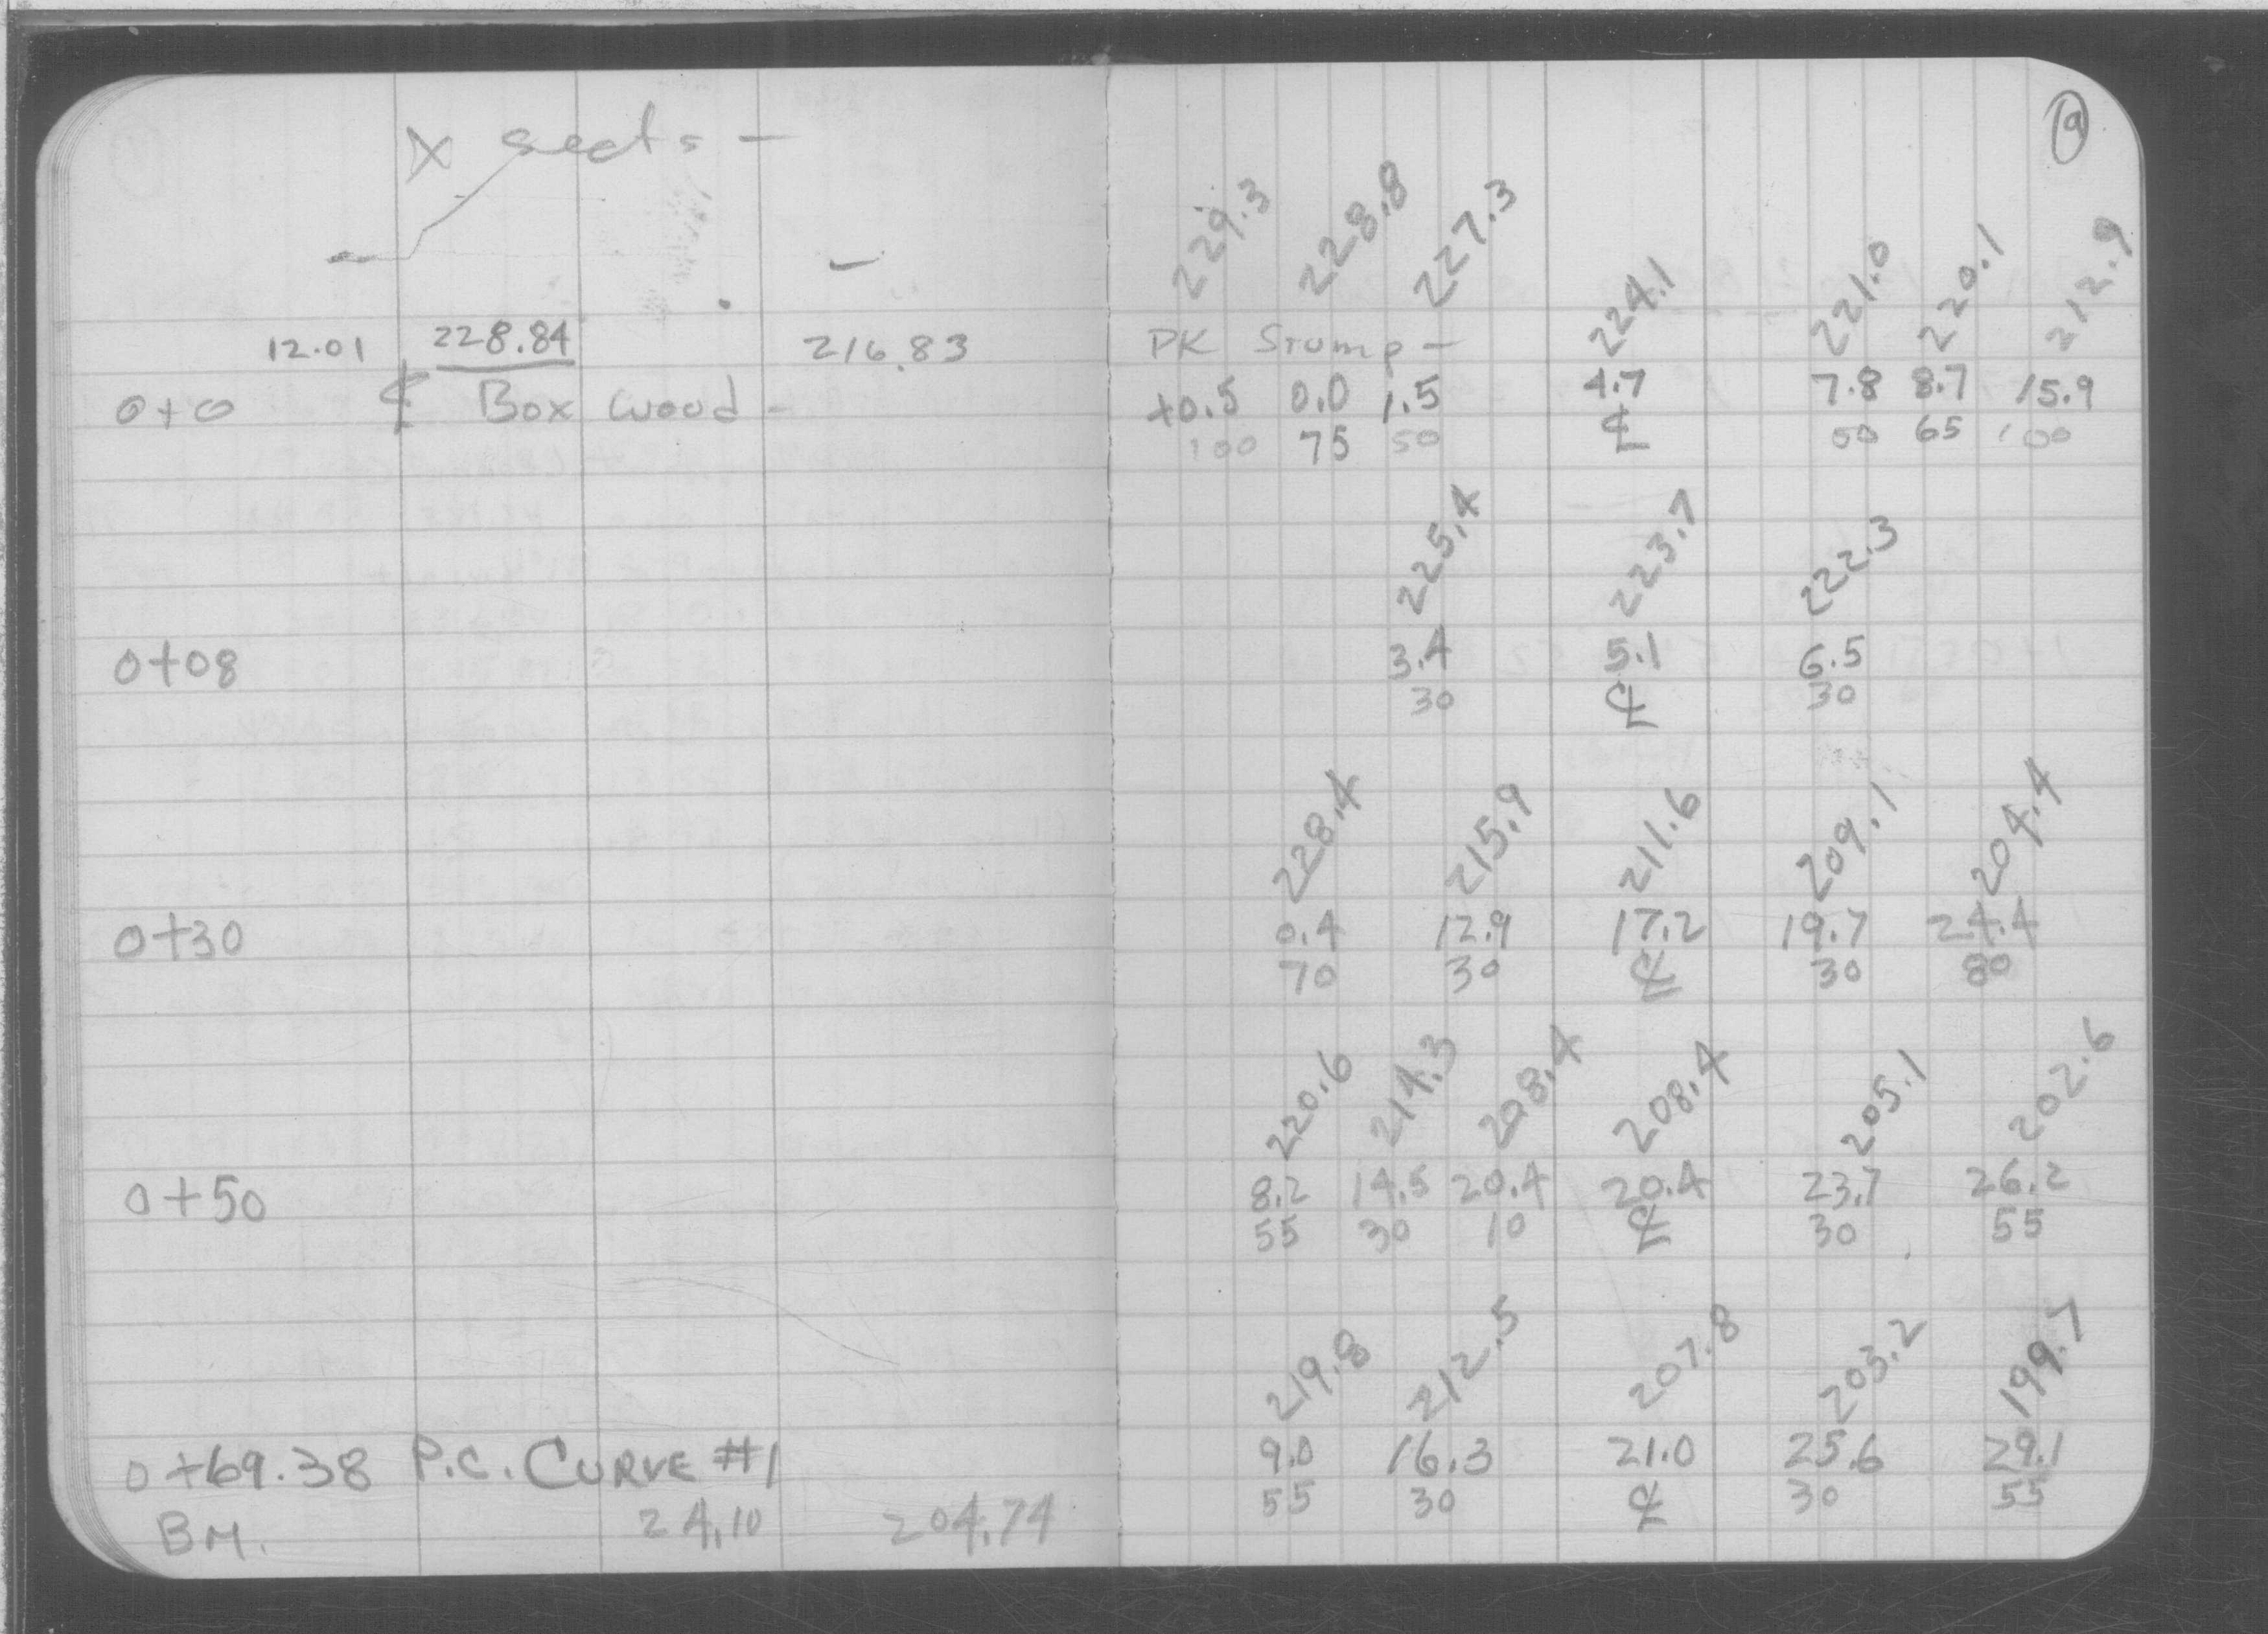 X sects -
9
229.3 228.8 227.3 224.1 221.0 220.1 212.9
12.01 228.84 216.83 PK Stump -
0+0 ℄ Box Wood - +0.5 0.0 1.5 4.7 7.8 8.7 15.9
100 75 50 ℄ 50 65 100
225.4 223.7 222.3
0+08 3.4 5.1 6.5
30 ℄ 30
228.4 215.9 211.6 209.1 204.4
0+30 0.4 12.9 17.2 19.7 24.4
70 30 ℄ 30 80
220.6 214.3 208.4 208.4 205.1 202.6
0+50 8.2 14.5 20.4 20.4 23.7 26.2
55 30 10 ℄ 30 55
219.8 212.5 207.8 203.2 199.7
0+69.38 P.C. CURVE #1 9.0 16.3 21.0 25.6 29.1
55 30 ℄ 30 55
BM. 24.10 204.74